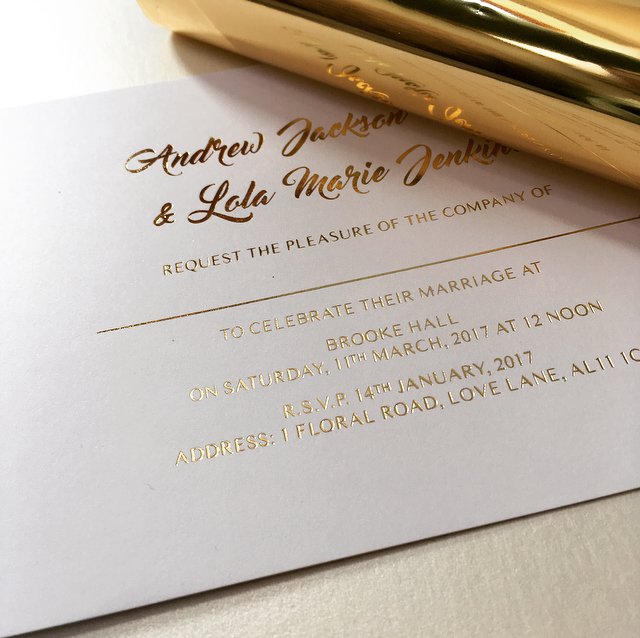 Andrew Jackson
& Lola Marie Jenkin
REQUEST THE PLEASURE OF THE COMPANY OF
TO CELEBRATE THEIR MARRIAGE AT
BROOKE HALL
ON SATURDAY, 11TH MARCH, 2017 AT 12 NOON
R.S.V.P. 14TH JANUARY, 2017
ADDRESS: 1 FLORAL ROAD, LOVE LANE, AL11